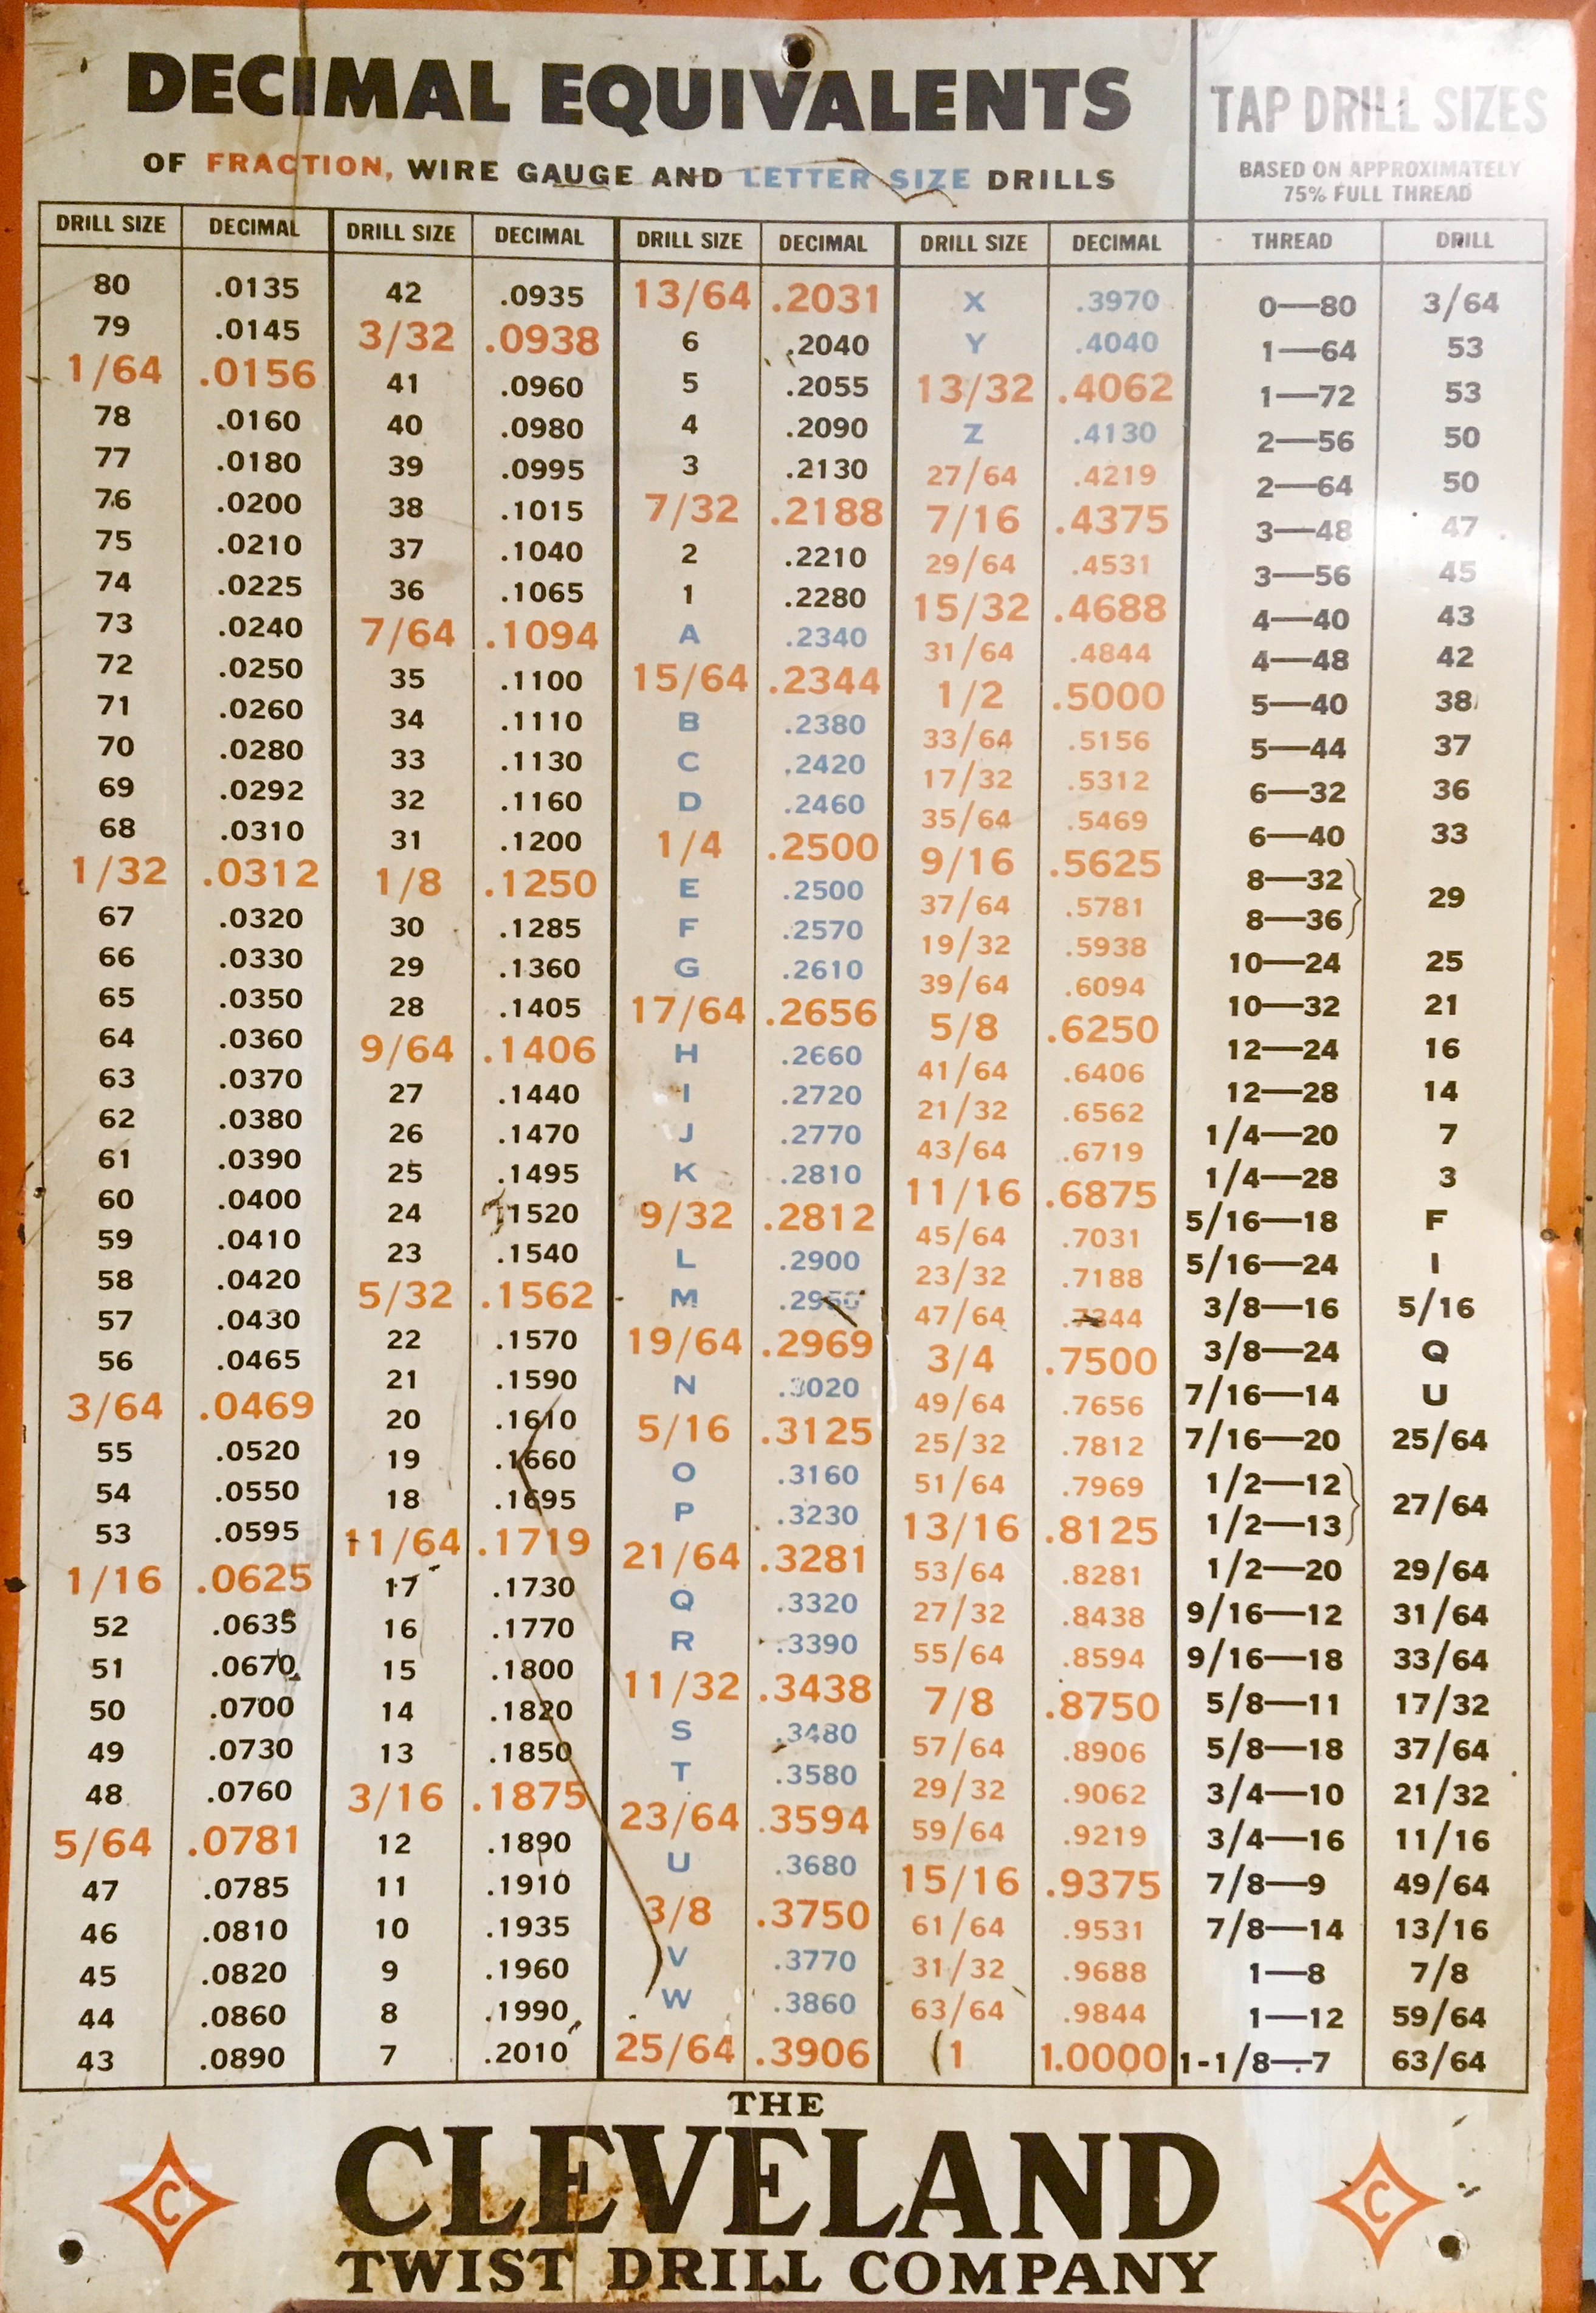 DECIMAL EQUIVALENTS
OF FRACTION, WIRE GAUGE AND LETTER SIZE DRILLS
DRILL SIZE DECIMAL
80 .0135
79 .0145
1/64 .0156
78 .0160
77 .0180
76 .0200
75 .0210
74 .0225
73 .0240
72 .0250
71 .0260
70 .0280
69 .0292
68 .0310
1/32 .0312
67 .0320
66 .0330
65 .0350
64 .0360
63 .0370
62 .0380
61 .0390
60 .0400
59 .0410
58 .0420
57 .0430
56 .0465
3/64 .0469
55 .0520
54 .0550
53 .0595
1/16 .0625
52 .0635
51 .0670
50 .0700
49 .0730
48 .0760
5/64 .0781
47 .0785
46 .0810
45 .0820
44 .0860
43 .0890
DRILL SIZE DECIMAL
42 .0935
3/32 .0938
41 .0960
40 .0980
39 .0995
38 .1015
37 .1040
36 .1065
7/64 .1094
35 .1100
34 .1110
33 .1130
32 .1160
31 .1200
1/8 .1250
30 .1285
29 .1360
28 .1405
9/64 .1406
27 .1440
26 .1470
25 .1495
24 .1520
23 .1540
5/32 .1562
22 .1570
21 .1590
20 .1610
19 .1660
18 .1695
11/64 .1719
17 .1730
16 .1770
15 .1800
14 .1820
13 .1850
3/16 .1875
12 .1890
11 .1910
10 .1935
9 .1960
8 .1990
7 .2010
DRILL SIZE DECIMAL
13/64 .2031
6 .2040
5 .2055
4 .2090
3 .2130
7/32 .2188
2 .2210
1 .2280
A .2340
15/64 .2344
B .2380
C .2420
D .2460
1/4 .2500
E .2500
F .2570
G .2610
17/64 .2656
H .2660
I .2720
J .2770
K .2810
9/32 .2812
L .2900
M .2950
19/64 .2969
N .3020
5/16 .3125
O .3160
P .3230
21/64 .3281
Q .3320
R .3390
11/32 .3438
S .3480
T .3580
23/64 .3594
U .3680
3/8 .3750
V .3770
W .3860
25/64 .3906
DRILL SIZE DECIMAL
X .3970
Y .4040
13/32 .4062
Z .4130
27/64 .4219
7/16 .4375
29/64 .4531
15/32 .4688
31/64 .4844
1/2 .5000
33/64 .5156
17/32 .5312
35/64 .5469
9/16 .5625
37/64 .5781
19/32 .5938
39/64 .6094
5/8 .6250
41/64 .6406
21/32 .6562
43/64 .6719
11/16 .6875
45/64 .7031
23/32 .7188
47/64 .7344
3/4 .7500
49/64 .7656
25/32 .7812
51/64 .7969
13/16 .8125
53/64 .8281
27/32 .8438
55/64 .8594
7/8 .8750
57/64 .8906
29/32 .9062
59/64 .9219
15/16 .9375
61/64 .9531
31/32 .9688
63/64 .9844
1 1.0000
TAP DRILL SIZES
BASED ON APPROXIMATELY
75% FULL THREAD
THREAD DRILL
0—80 3/64
1—64 53
1—72 53
2—56 50
2—64 50
3—48 47
3—56 45
4—40 43
4—48 42
5—40 38
5—44 37
6—32 36
6—40 33
8—32
29
8—36
10—24 25
10—32 21
12—24 16
12—28 14
1/4—20 7
1/4—28 3
5/16—18 F
5/16—24 I
3/8—16 5/16
3/8—24 Q
7/16—14 U
7/16—20 25/64
1/2—12
27/64
1/2—13
1/2—20 29/64
9/16—12 31/64
9/16—18 33/64
5/8—11 17/32
5/8—18 37/64
3/4—10 21/32
3/4—16 11/16
7/8—9 49/64
7/8—14 13/16
1—8 7/8
1—12 59/64
1-1/8—7 63/64
THE
C CLEVELAND C
TWIST DRILL COMPANY